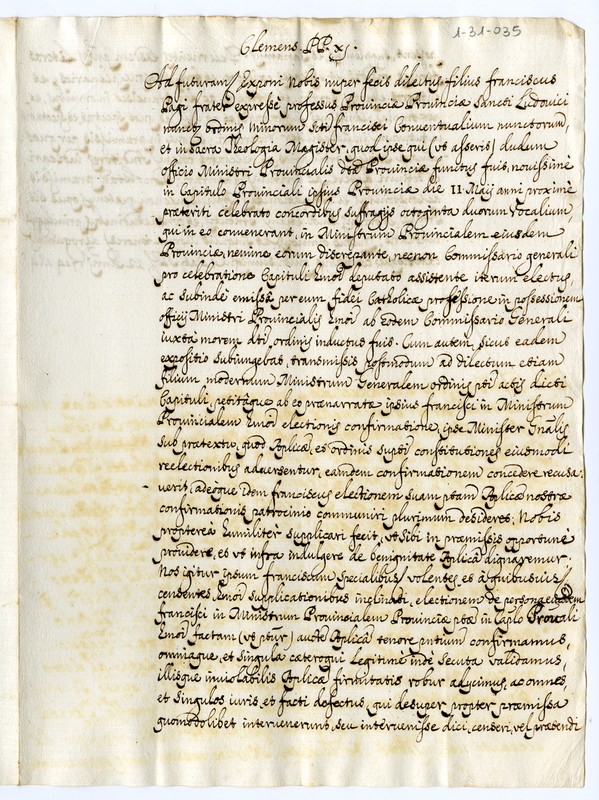 1-31-035
Clemens PP. XI.
Ad futuram // Exponi nobis nuper fecit dilectus filius franciscus
Pagi frater expressè professus Provinciæ Provinciæ Sancti Ludovici
nuncup. ordinis minorum Scti francisci Conventualium nunctorum,
et in sacra Theologia Magister, quod ipse qui (ut asserit) dudum
officio Ministri Provincialis dtæ Provinciæ functus fuit, novissimè
in Capitulo Provinciali ipsius Provinciæ die 11 Maij anni proximè
præteriti celebrato concordibus suffragijs octoginta duorum Vocalium
qui in eo convenerant, in Ministrum Provincialem eiusdem
Provinciæ, nemine eorum discrepante, necnon Commissario generali
pro celebratione Capituli Emoi deputato assistente iterum electus,
ac subinde emissâ per eum fidei Catholicæ professione in possessionem
officij Ministri Provincialis Emoi ab eodem Commissario Generali
iuxta morem dti ordinis inductus fuit. Cum autem, sicut eadem
expositio subiungebat, transmissis postmodum ad dilectum etiam
filium modernum Ministrum Generalem ordinis pti actis dicti
Capituli, petitâque ab eo prænarratæ ipsius francisci in Ministrum
Provincialem Emoi electionis confirmatione, ipse Minister Gnalis
sub prætextu, quod Aplicæ, et ordinis supti constitutiones eiusmodi
reelectionibus adversentur, eamdem confirmationem concedere recusa:
verit, adeoque idem franciscus electionem suam ptam Aplicæ nostræ
confirmationis patrocinio communiri plurimum desideret; Nobis
propterea humiliter supplicari fecit, ut sibi in præmissis opportunè
providere, et ut infra indulgere de benignitate Aplica dignaremur.
Nos igitur ipsum franciscum specialibus // volentes, et à quibusuis //
censentes Emoi supplicationibus inclinati, electionem de persona eiusdem
francisci in Ministrum Provincialem Provinciæ ptæ in Caplo Provali
Emoi factam (ut ptur) aucte Aplica tenore pntium confirmamus,
omniaque, et singula cæteroqui legitimè inde secuta validamus,
illisque inviolabilis Aplicæ firmitatis robur adijcimus, ac omnes,
et singulos iuris, et facti defectus, qui desuper propter præmissa
quomodolibet intervenerint, seu intervenisse dici, censeri, vel prætendi